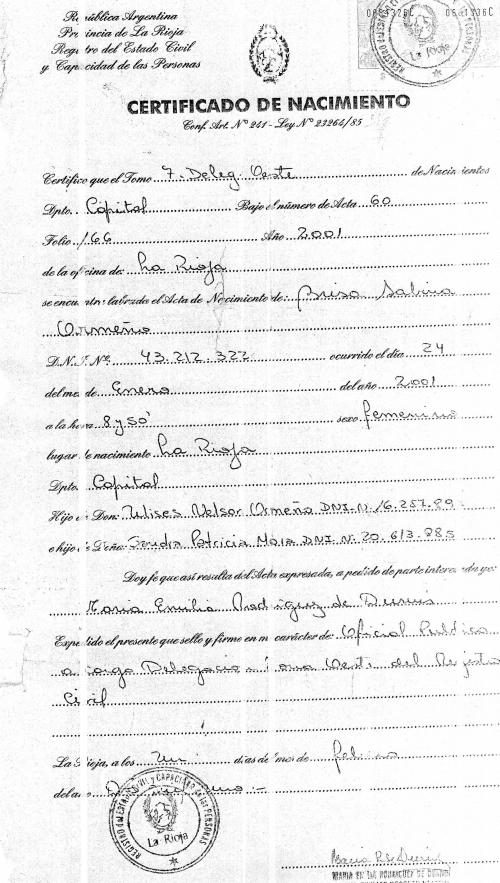 República Argentina
Provincia de La Rioja
Registro del Estado Civil
y Capacidad de las Personas
La Rioja
CERTIFICADO DE NACIMIENTO
Conf. Art. Nº 241 - Ley Nº 23264/85
Certifico que el Tomo 7. Deleg. Oeste de Nacimientos
Dpto. Capital Bajo el número de Acta 60
Folio 166 Año 2001
de la oficina de: La Rioja
se encuentra labrada el Acta de Nacimiento de: Brisa Sabrina
Ormeño
D.N.I. Nº 43.212.322 ocurrido el día 24
del mes de Enero del año 2001
a la hora 8 y 50' sexo femenino
lugar de nacimiento La Rioja
Dpto. Capital
Hijo de Don: Ulises Nelson Ormeño DNI. N.
e hijo de Doña: Sandra Patricia Mora DNI. Nº 20.613.885
Doy fe que así resulta del Acta expresada, a pedido de parte interesada yo:
Maria Emilia Rodriguez de
Expedido el presente que sello y firmo en mi carácter de: Oficial Publico
a cargo Delegacion Zona Oeste del Registro
Civil
La Rioja, a los un días del mes de febrero
del año
REGISTRO del ESTADO CIVIL y CAPACIDAD de las PERSONAS
La Rioja